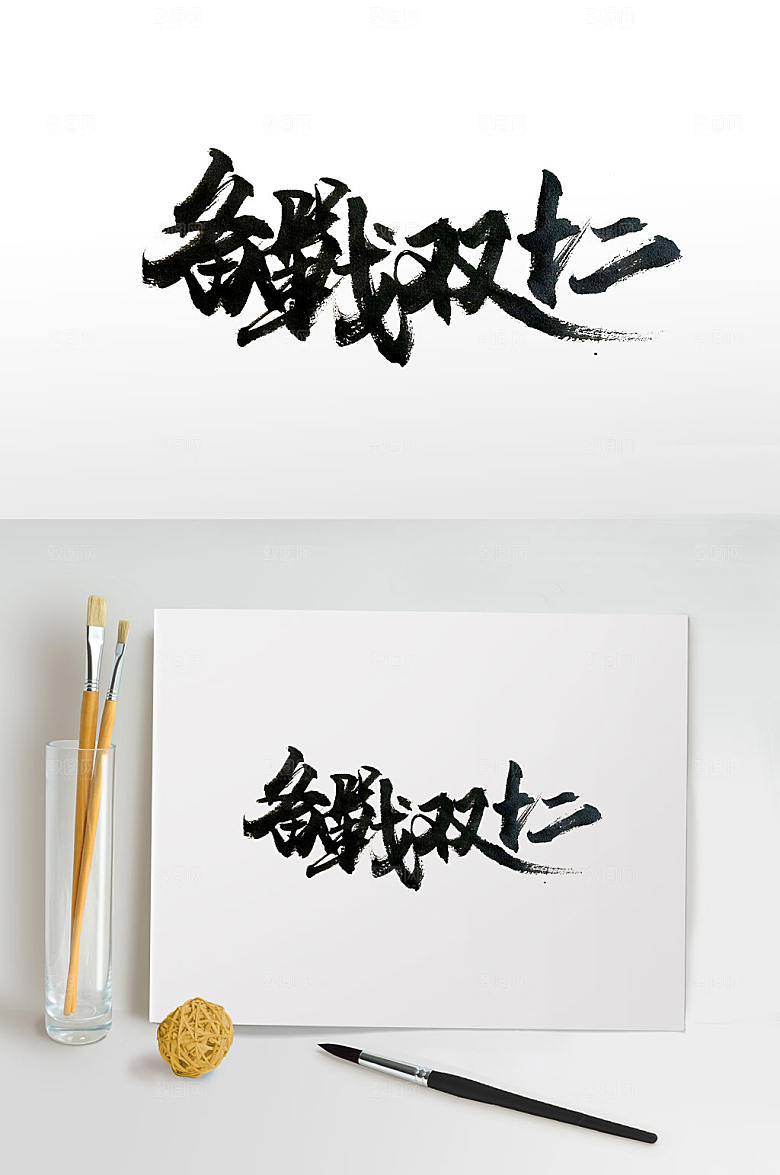 备戰双十二
备戰双十二